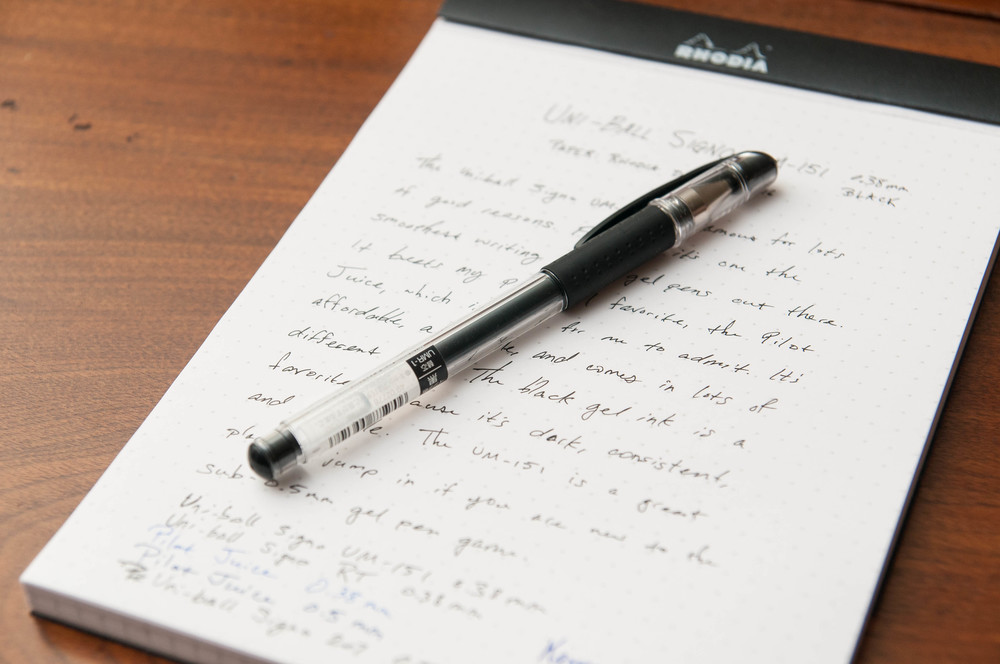 RHODIA
UNI-BALL SIGNO M-151 0.38mm
PAPER: RHODIA BLACK
The uniball Signo UM for lots
of good reasons. it's one the
smoothest writing gel pens out there.
It beats my favorite, the Pilot
Juice, which is for me to admit. It's
affordable, a and comes in lots of
different The black gel ink is a
favorite cause it's dark, consistent,
and The UM-151 is a great
jump in if you are new to the
sub-0.5mm gel pen game.
Uniball Signo UM-151 0.38mm
Uniball Signo RT 0.38mm
Pilot Juice 0.38mm
Pilot Juice 0.5mm
Uniball Signo 207
UMR-1
黒